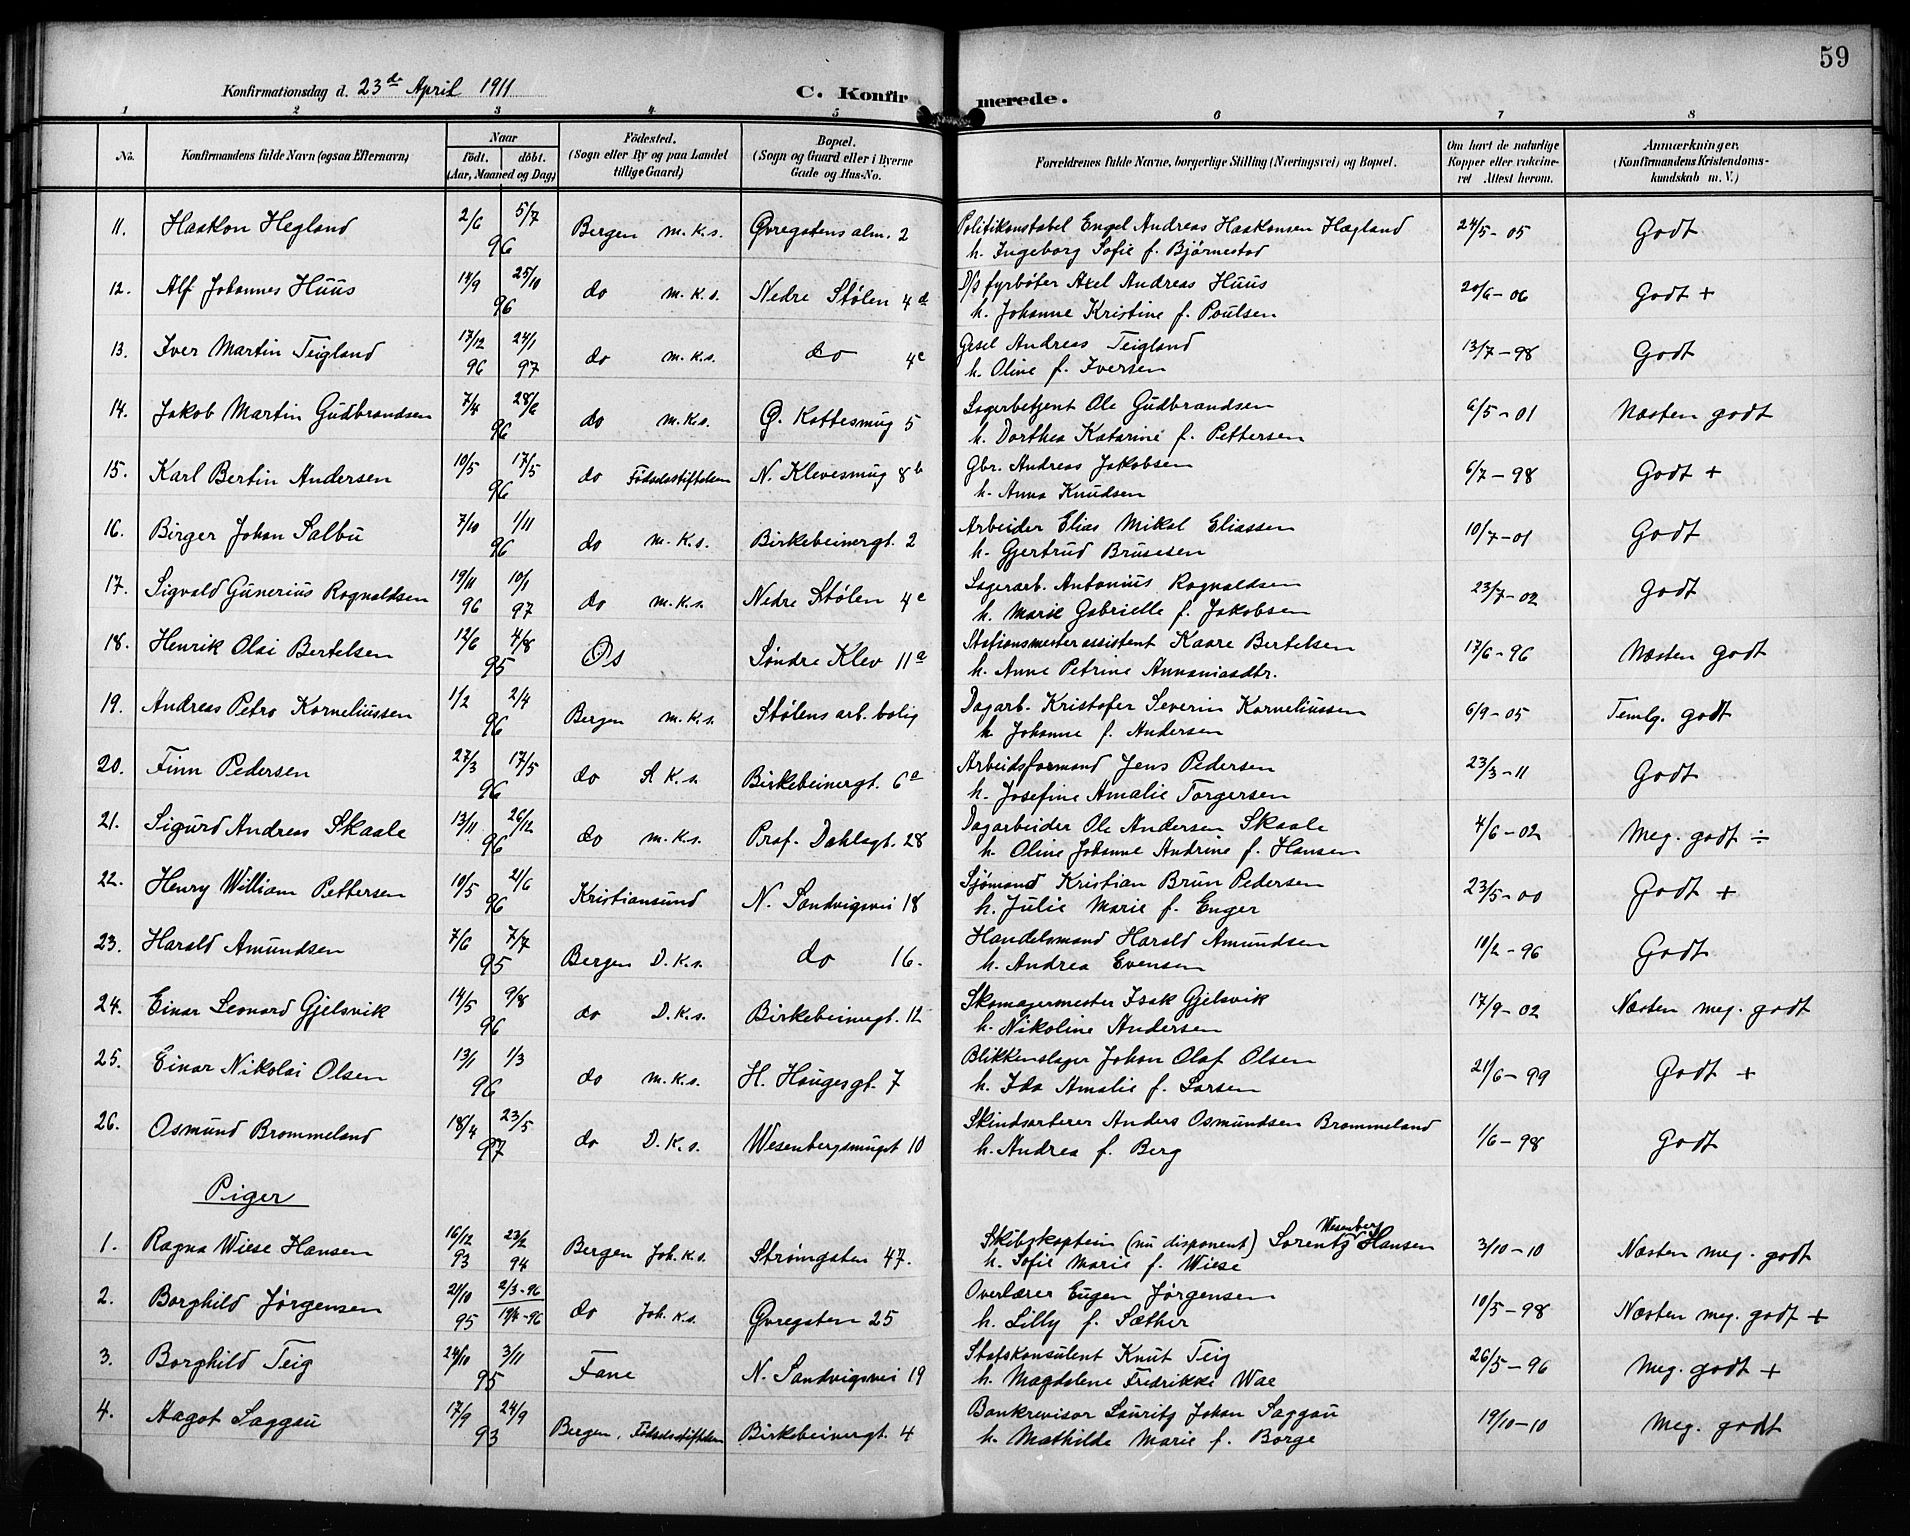 59
Konfirmationsdag d. 23de April 1911
C. Konfirmerede.
1 2 3 4 5 6 7 8
No. Konfirmandens fulde Navn (ogsaa Efternavn) Naar födt. döbt. (Aar, Maaned og Dag) Födested. (Sogn eller By og paa Landet tillige Gaard) Bopæl. (Sogn og Gaard eller i Byerne Gade og Hus-No. Forældrenes fulde Navne, borgerlige Stilling (Næringsvei) og Bopæl. Om havt de naturlige Kopper eller vakcineret Attest herom. Anmærkninger. (Konfirmandens Kristendomskundskab m. V.)
11. Haakon Hegland 2/6 5/7 96 Bergen m.k.s. Øvregatens alm. 2 Politikonstabel Engel Andreas Haakonsen Hægland 24/5-05 Godt
h. Ingeborg Sofie f. Bjørnestad
12. Alf Johannes Huus 14/9 25/10 96 do m.k.s. Nedre Stølen 4d D/s fyrbøter Axel Andreas Huus 20/6-06 Godt +
h. Johanne Kristine f. Poulsen
13. Iver Martin Teigland 17/12 96 24/1 97 do m.k.s. do 4c Gesel Andreas Teigland 13/7-98 Godt
h. Oline f. Iversen
14. Jakob Martin Gudbrandsen 7/4 28/6 96 do m.k.s. Ø. Kattesmug 5 Lagerbetjent Ole Gudbrandsen 6/5-01 Næsten godt
h. Dorthea Katarine f. Pettersen
15. Karl Bertin Andersen 10/5 17/5 96 do Fødselsstiftelsen N. Klevesmug 8b Gbr. Andreas Jakobsen 6/7-98 Godt +
h. Anna Knudsen
16. Birger Johan Salbu 7/10 1/11 96 do m.k.s. Birkebeinergt. 2 Arbeider Elias Mikal Eliassen 10/7-01 Godt
h. Gjertrud Brusesen
17. Sigvald Gunerius Rognaldsen 19/11 96 10/1 97 do m.k.s. Nedre Stølen 4c Lagerarb. Antonius Rognaldsen 23/7-02 Godt
h. Marie Gabrielle f. Jakobsen
18. Henrik Olai Bertelsen 12/6 4/8 95 Os Søndre Klev 11a Stationsmesterassistent Kaare Bertelsen 17/6-96 Næsten godt
h. Anne Petrine Annaniasdtr.
19. Andreas Petro Korneliussen 1/2 2/4 96 Bergen m.k.s. Stølens arb. bolig Dagarb. Kristofer Severin Korneliussen 6/9-05 Temlg. godt
h. Johanne f. Andersen
20. Finn Pedersen 27/3 17/5 96 do K.s. Birkebeinergt. 6a Arbeidsformand Jens Pedersen 23/3-11 Godt
h. Josefine Amalie Torgersen
21. Sigurd Andreas Skaale 13/11 26/12 96 do m.k.s. Prof. Dahlsgt. 28 Dagarbeider Ole Andersen Skaale 4/6-02 Meg. godt ÷
h. Oline Johanne Andrine f. Hansen
22. Henry William Pettersen 10/5 2/6 96 Kristiansund N. Sandvigsvei 18 Sjømand Kristian Brun Pedersen 23/5-00 Godt +
h. Julie Marie f. Enger
23. Harald Amundsen 7/6 7/7 95 Bergen D.k.s. do 16. Handelsmand Harald Amundsen 10/2-96 Godt
h. Andrea Evensen
24. Einar Leonard Gjelsvik 14/5 9/8 96 do D.k.s. Birkebeinergt. 12 Skomagermester Isak Gjelsvik 17/9-02 Næsten meg. godt
h. Nikoline Andersen
25. Einar Nikolai Olsen 13/1 1/3 96 do m.k.s. H. Haugesgt. 7 Blikkenslager Johan Olaf Olsen 21/6-99 Godt +
h. Ida Amalie f. Larsen
26. Osmund Brommeland 18/4 23/5 97 do D.k.s. Wesenbergsmuget 10 Skindsarberer Anders Osmundsen Brommeland 1/6-98 Godt
h. Andrea f. Berg
Piger
1. Ragna Wiese Hansen 16/12 93 23/2 94 Bergen Joh.k.s. Strømgaten 47. Skibskaptein (nu disponent) Lorentz Wesenberg Hansen 3/10-10 Næsten meg. godt
h. Sofie Marie f. Wiese
2. Borghild Jørgensen 21/10 95 2/3-96 19/4-96 do Joh.k.s. Øvregaten 25 Overlærer Eugen Jørgensen 10/5-98 Næsten meg. godt +
h. Lilly f. Sæther
3. Borghild Teig 24/10 3/11 95 Fane N. Sandvigsvei 19 Statskonsulent Knut Teig 26/5-96 Meg. godt +
h. Magdalene Fredrikke Wae
4. Aagot Saggau 17/9 24/9 93 Bergen, Fødselsstiftelsen Birkebeinergt. 4 Bankrevisor Lauritz Johan Saggau 19/10-10 Meg. godt
h. Mathilde Marie f. Borge